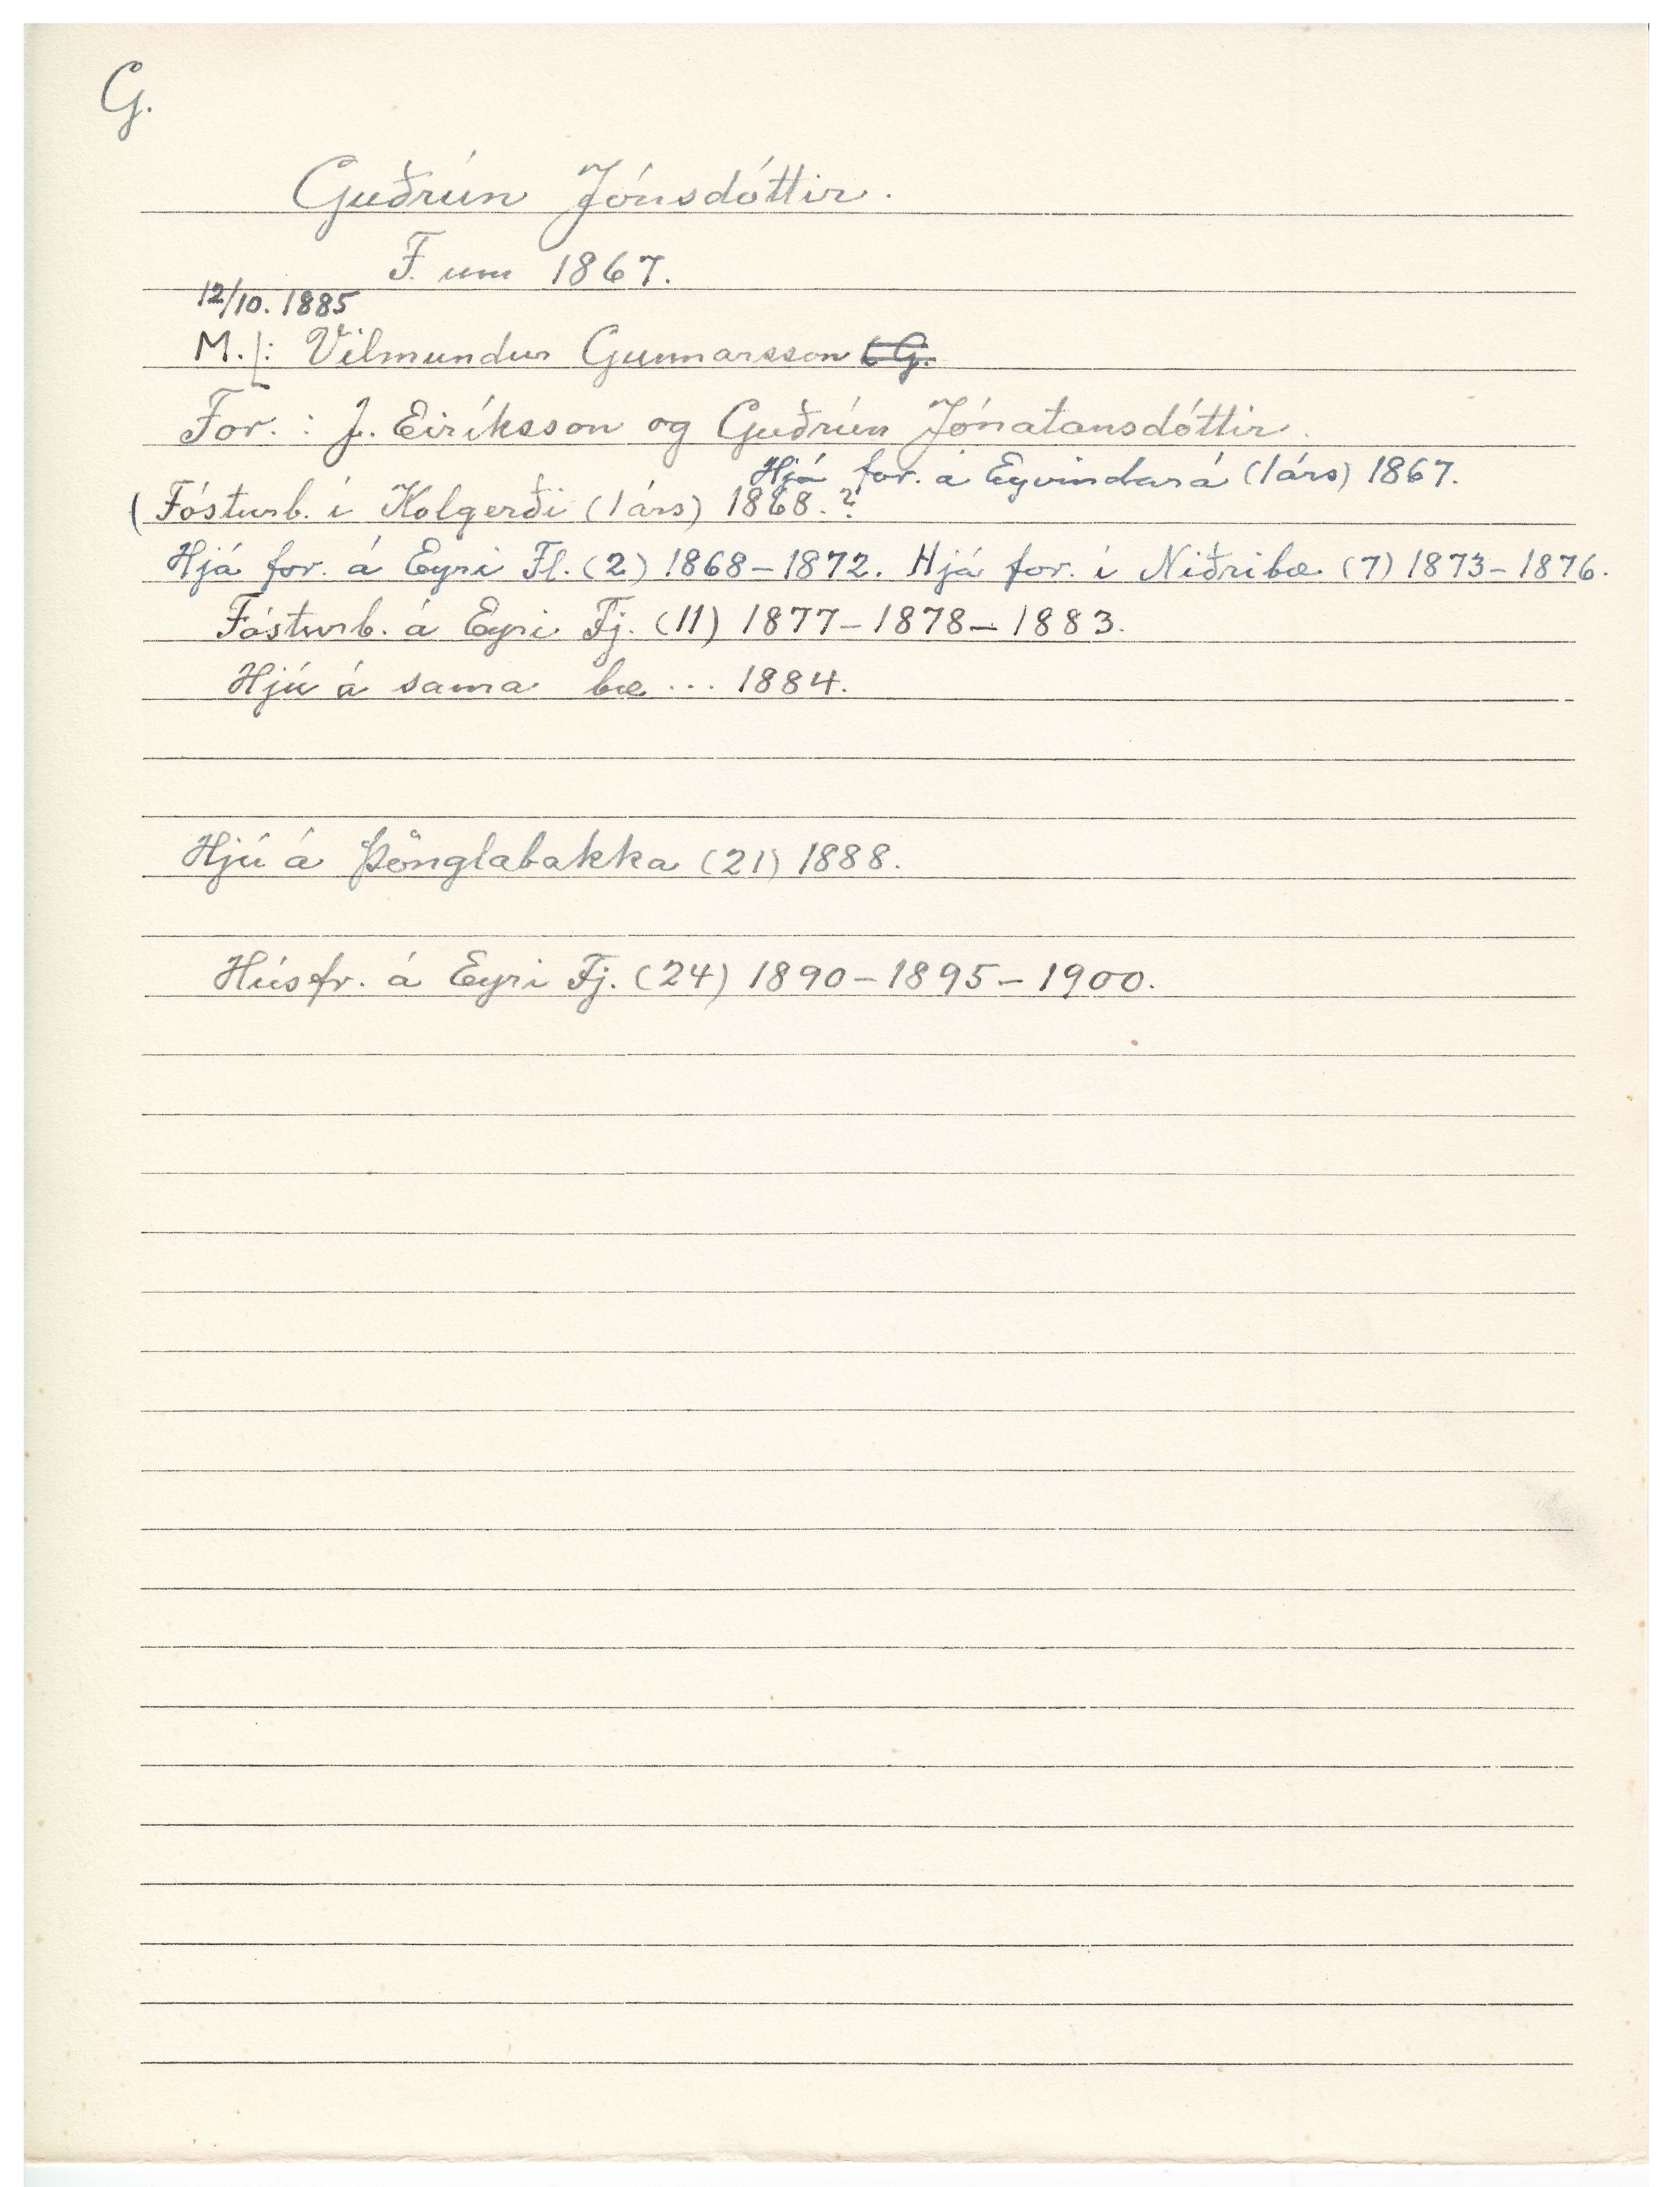 G.
Guðrún Jónsdóttir.
F. um 1867.
12/10. 1885
M.: Vilmundur Gunnarsson G.
For.: J. Eiríksson og Guðrún Jónatansdóttir.
Hjá for. á Eyvindará (1árs) 1867.
(Fósturb. í Kolgerði (1árs) 1868.?
Hjá for. á Eyri Fl. (2) 1868-1872. Hjá for. í Niðribæ (7) 1873-1876.
Fósturb. á Eyri Fj. (11) 1877-1878-1883.
Hjú á sama bæ ... 1884.
Hjú á Þönglabakka (21) 1888.
Húsfr. á Eyri Fj. (24) 1890-1895-1900.